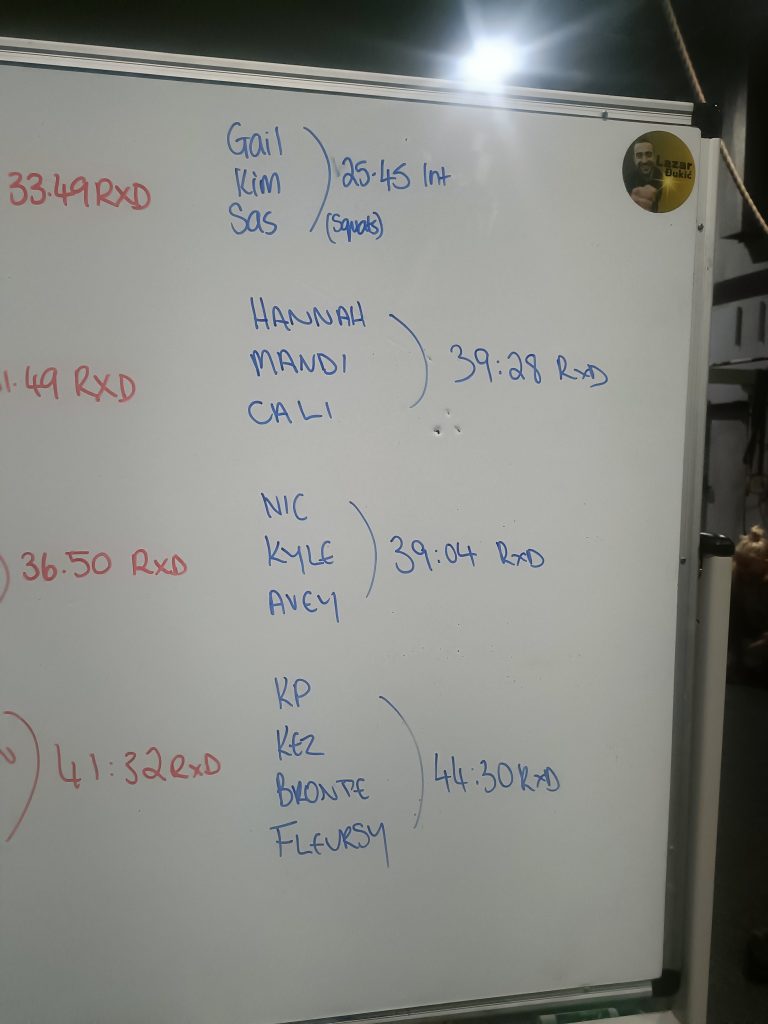 33.49 RXD
Gail
Kim
Sas
25.45 Int
(Squats)
Lazar
Đukić
.49 RXD
HANNAH
MANDI
CALI
39:28 RXD
36.50 RXD
NIC
KYLE
AVEY
39:04 RXD
41:32 RXD
KP
KEZ
BRONTE
FLEURSY
44:30 RXD